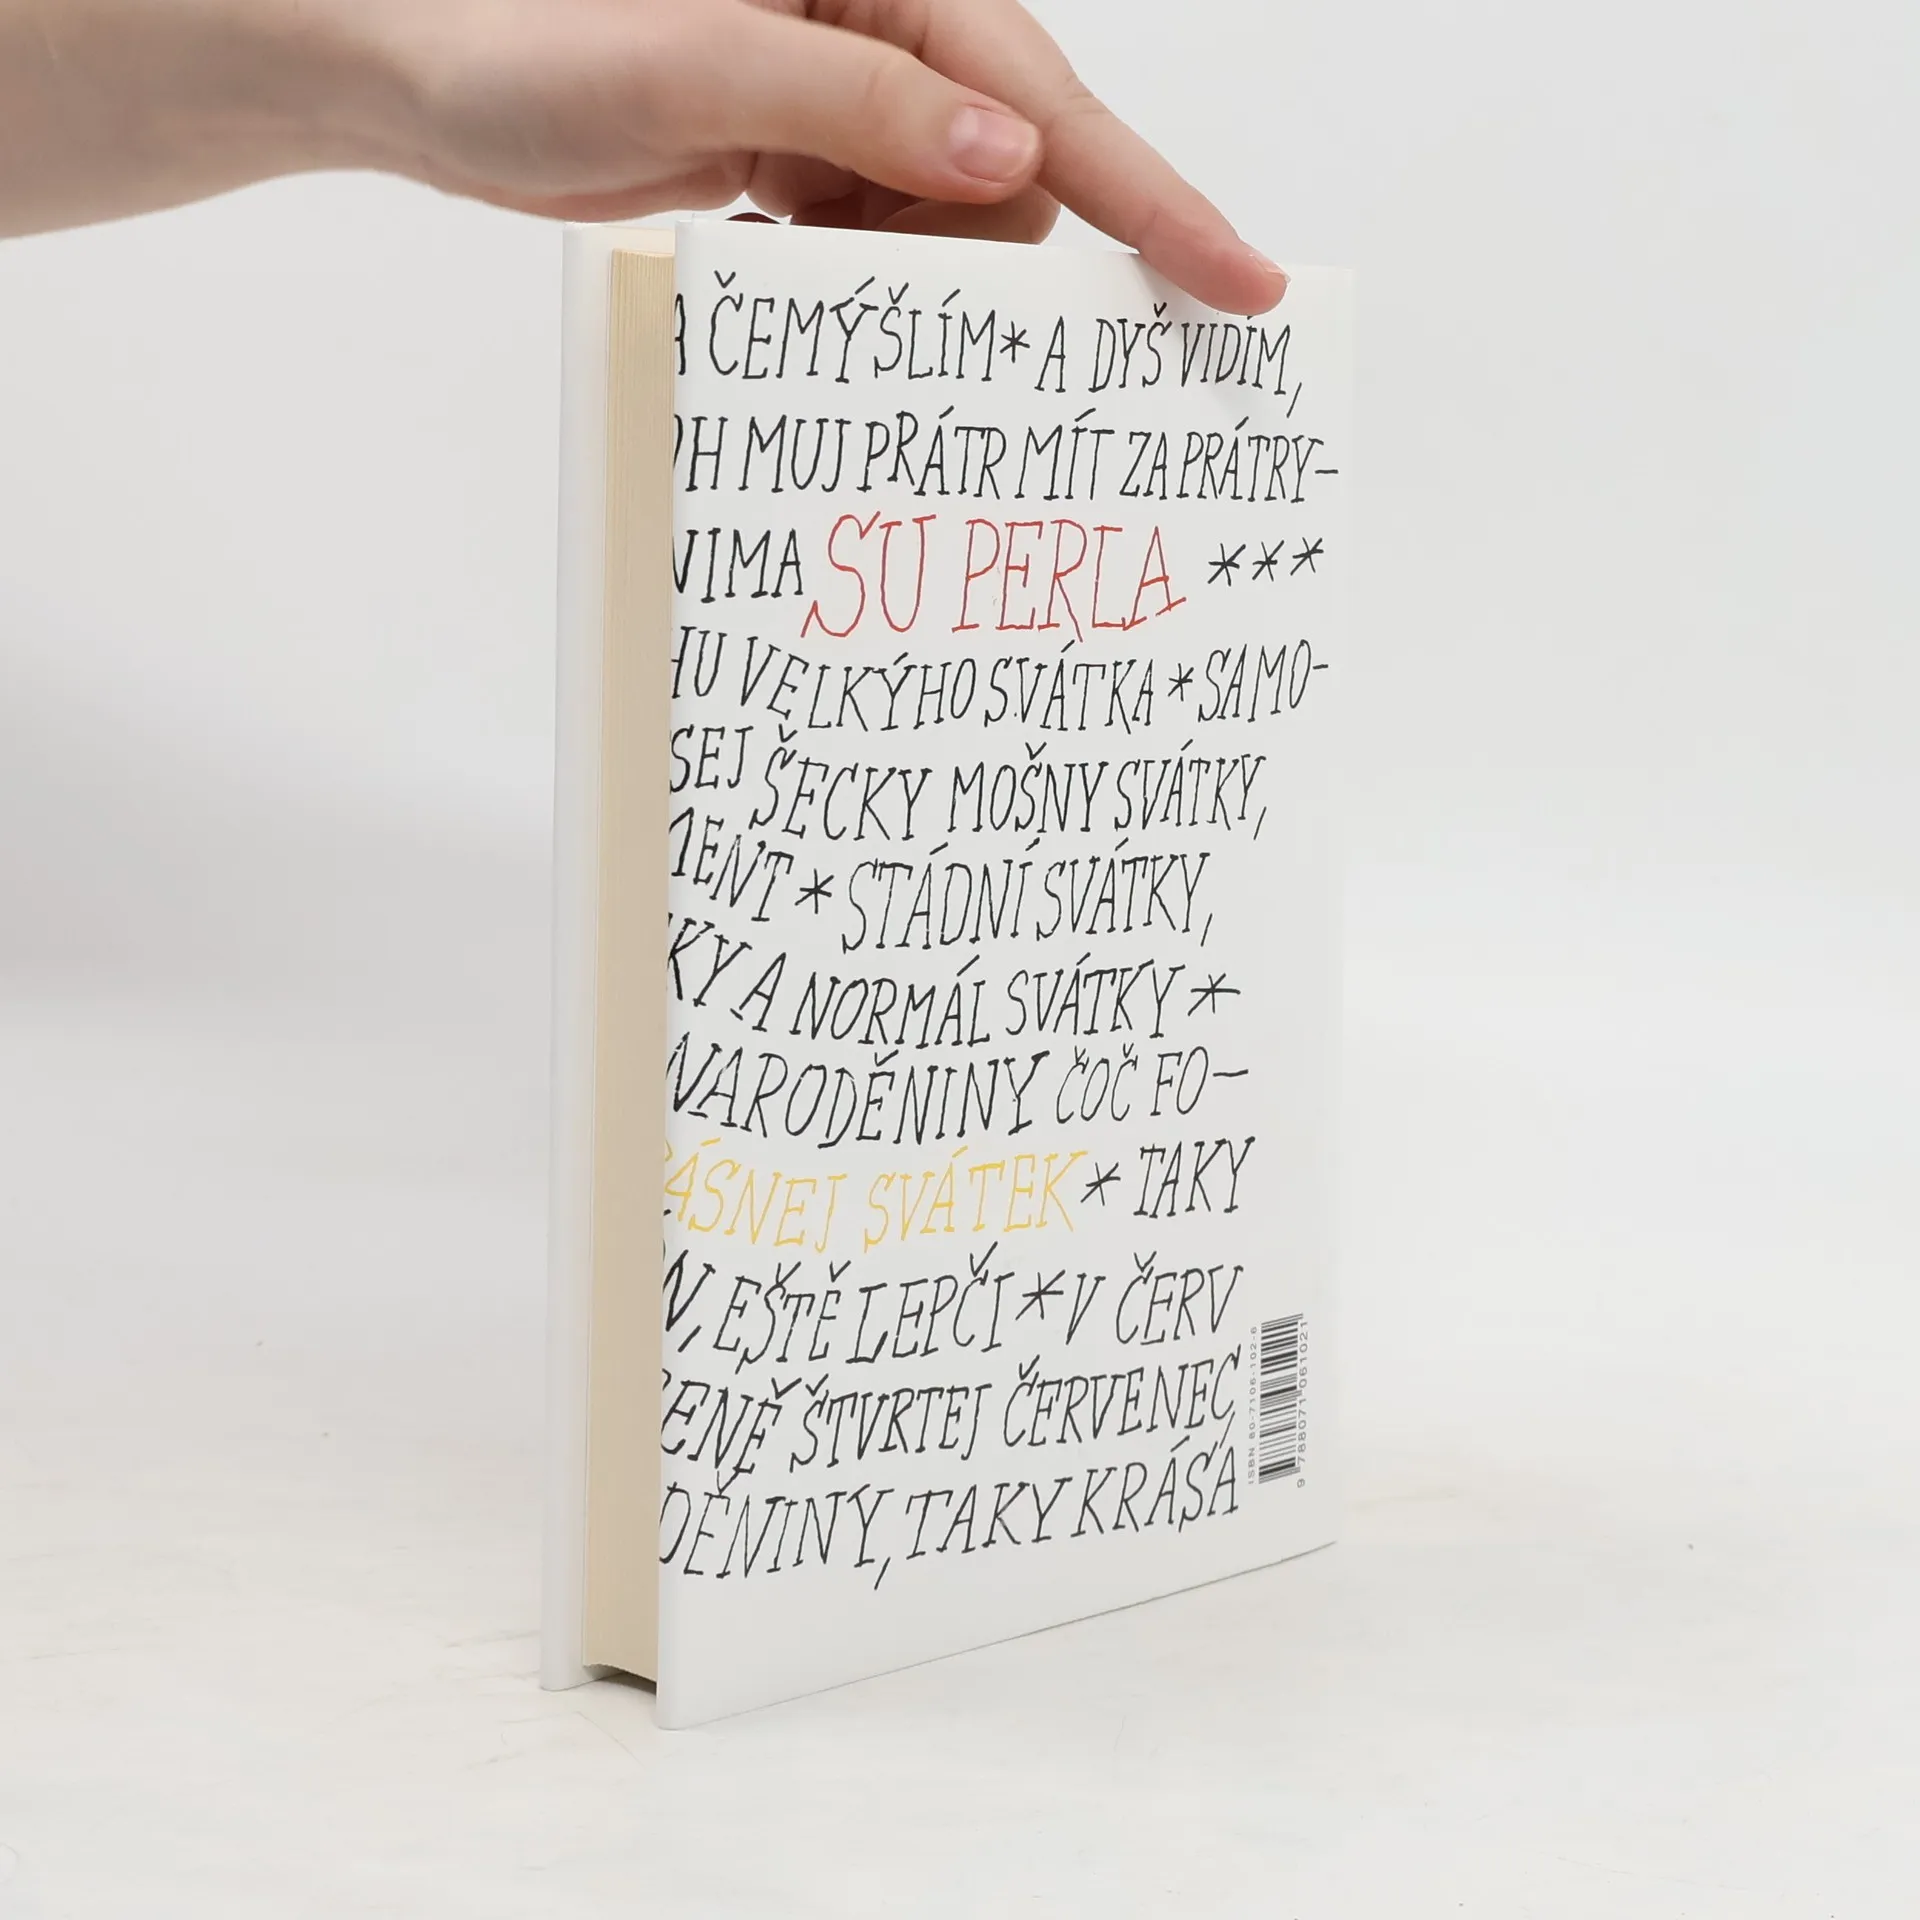 A ČEMÝŠLÍM * A DYŠ VIDÍM,
H MUJ PŘÁTR MÍT ZA PRÁTRY-
NIMA SU PERLA ***
HU VELKÝHO SVÁTKA * SAMO-
SEJ ŠECKY MOŠNY SVÁTKY,
MENT * STÁDNÍ SVÁTKY,
KY A NORMÁL SVÁTKY *
NARODĚNINY ČOČ FO-
ÁSNEJ SVÁTEK * TAKY
N, EŠTĚ LEPČI * V ČERV
ENĚ ŠTVRTEJ ČERVENEC,
DĚNINY, TAKY KRÁSA
ISBN 80-7106-102-6
9 788071 061021